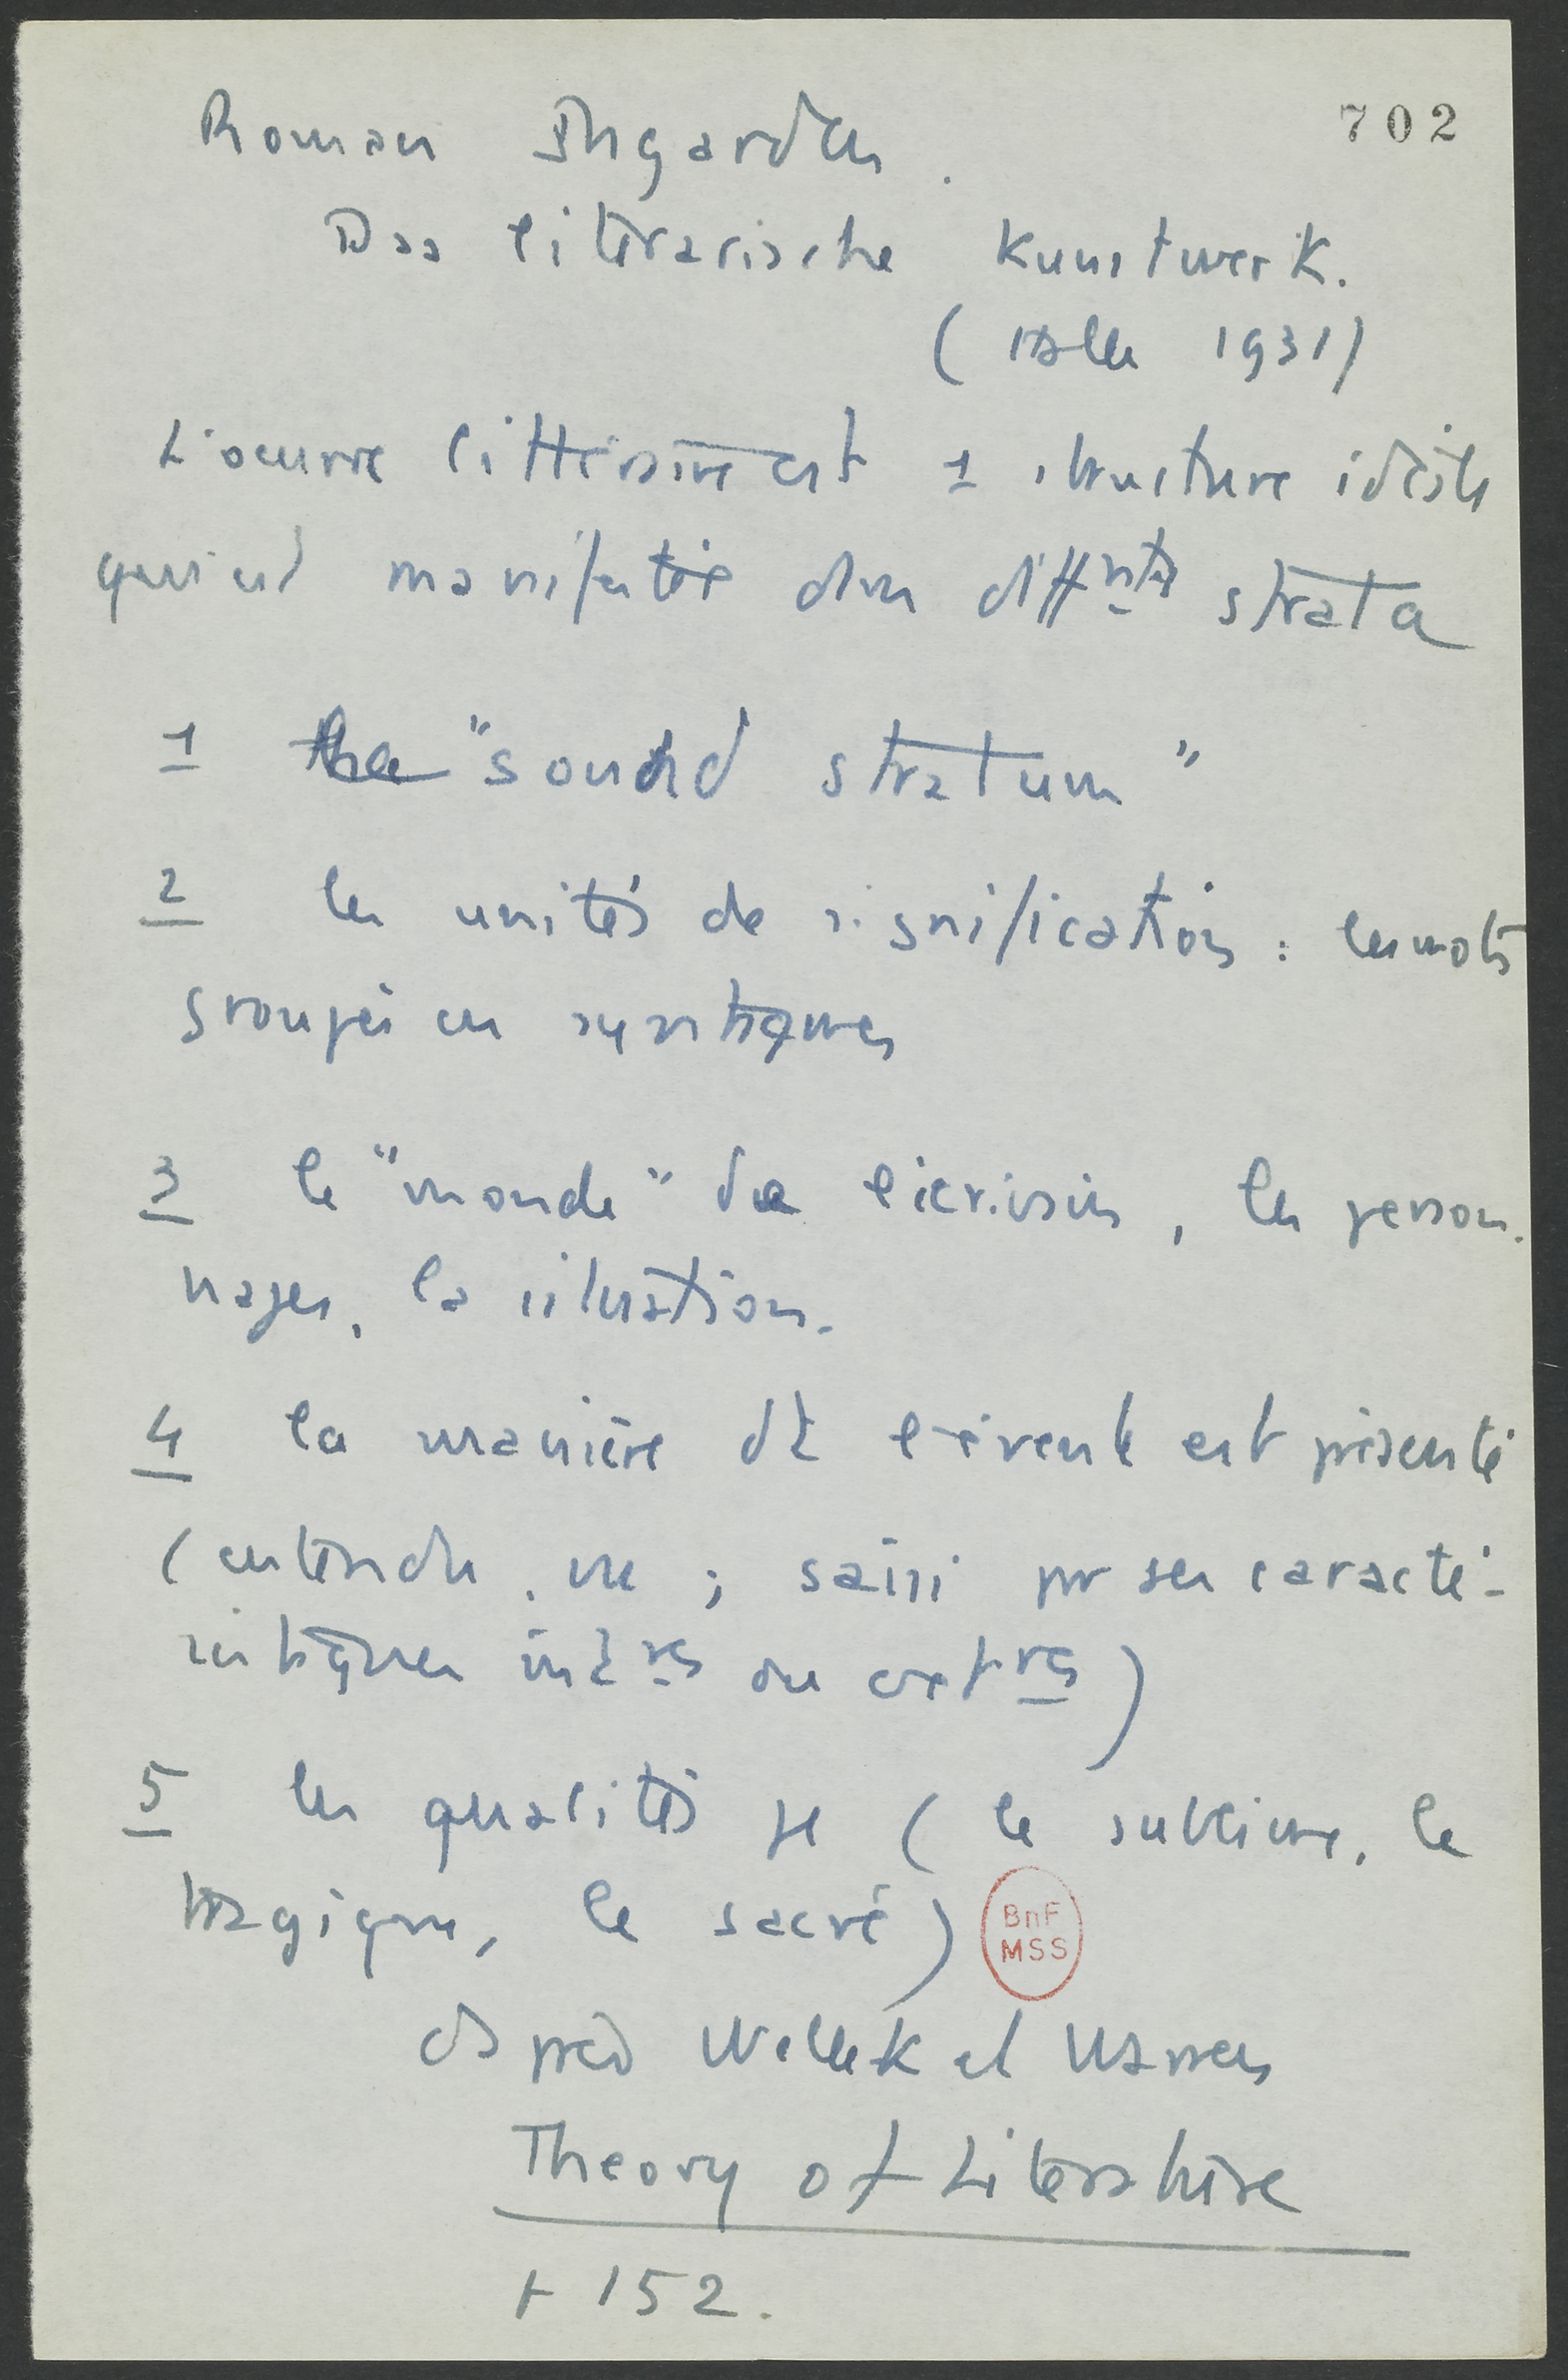 702
Roman Ingarden.
Das literarische Kunstwerk.
(Halle 1931)
L'oeuvre littéraire est 1 structure idéale
qui est manifestée dans diffnts strata
1 the "sound stratum"
2 les unités de signification : les mots
groupés en syntagmes
3 le "monde" de l'écrivain, les person-
nages, la situation.
4 la manière dt l'évent est présenté
(entendu, vu ; saisi pr ses caracté-
ristiques intres ou extres)
5 les qualités (le sublime, le
tragique, le sacré)
BnF
MSS
d'après Wellek et Warren
Theory of Literature
152.